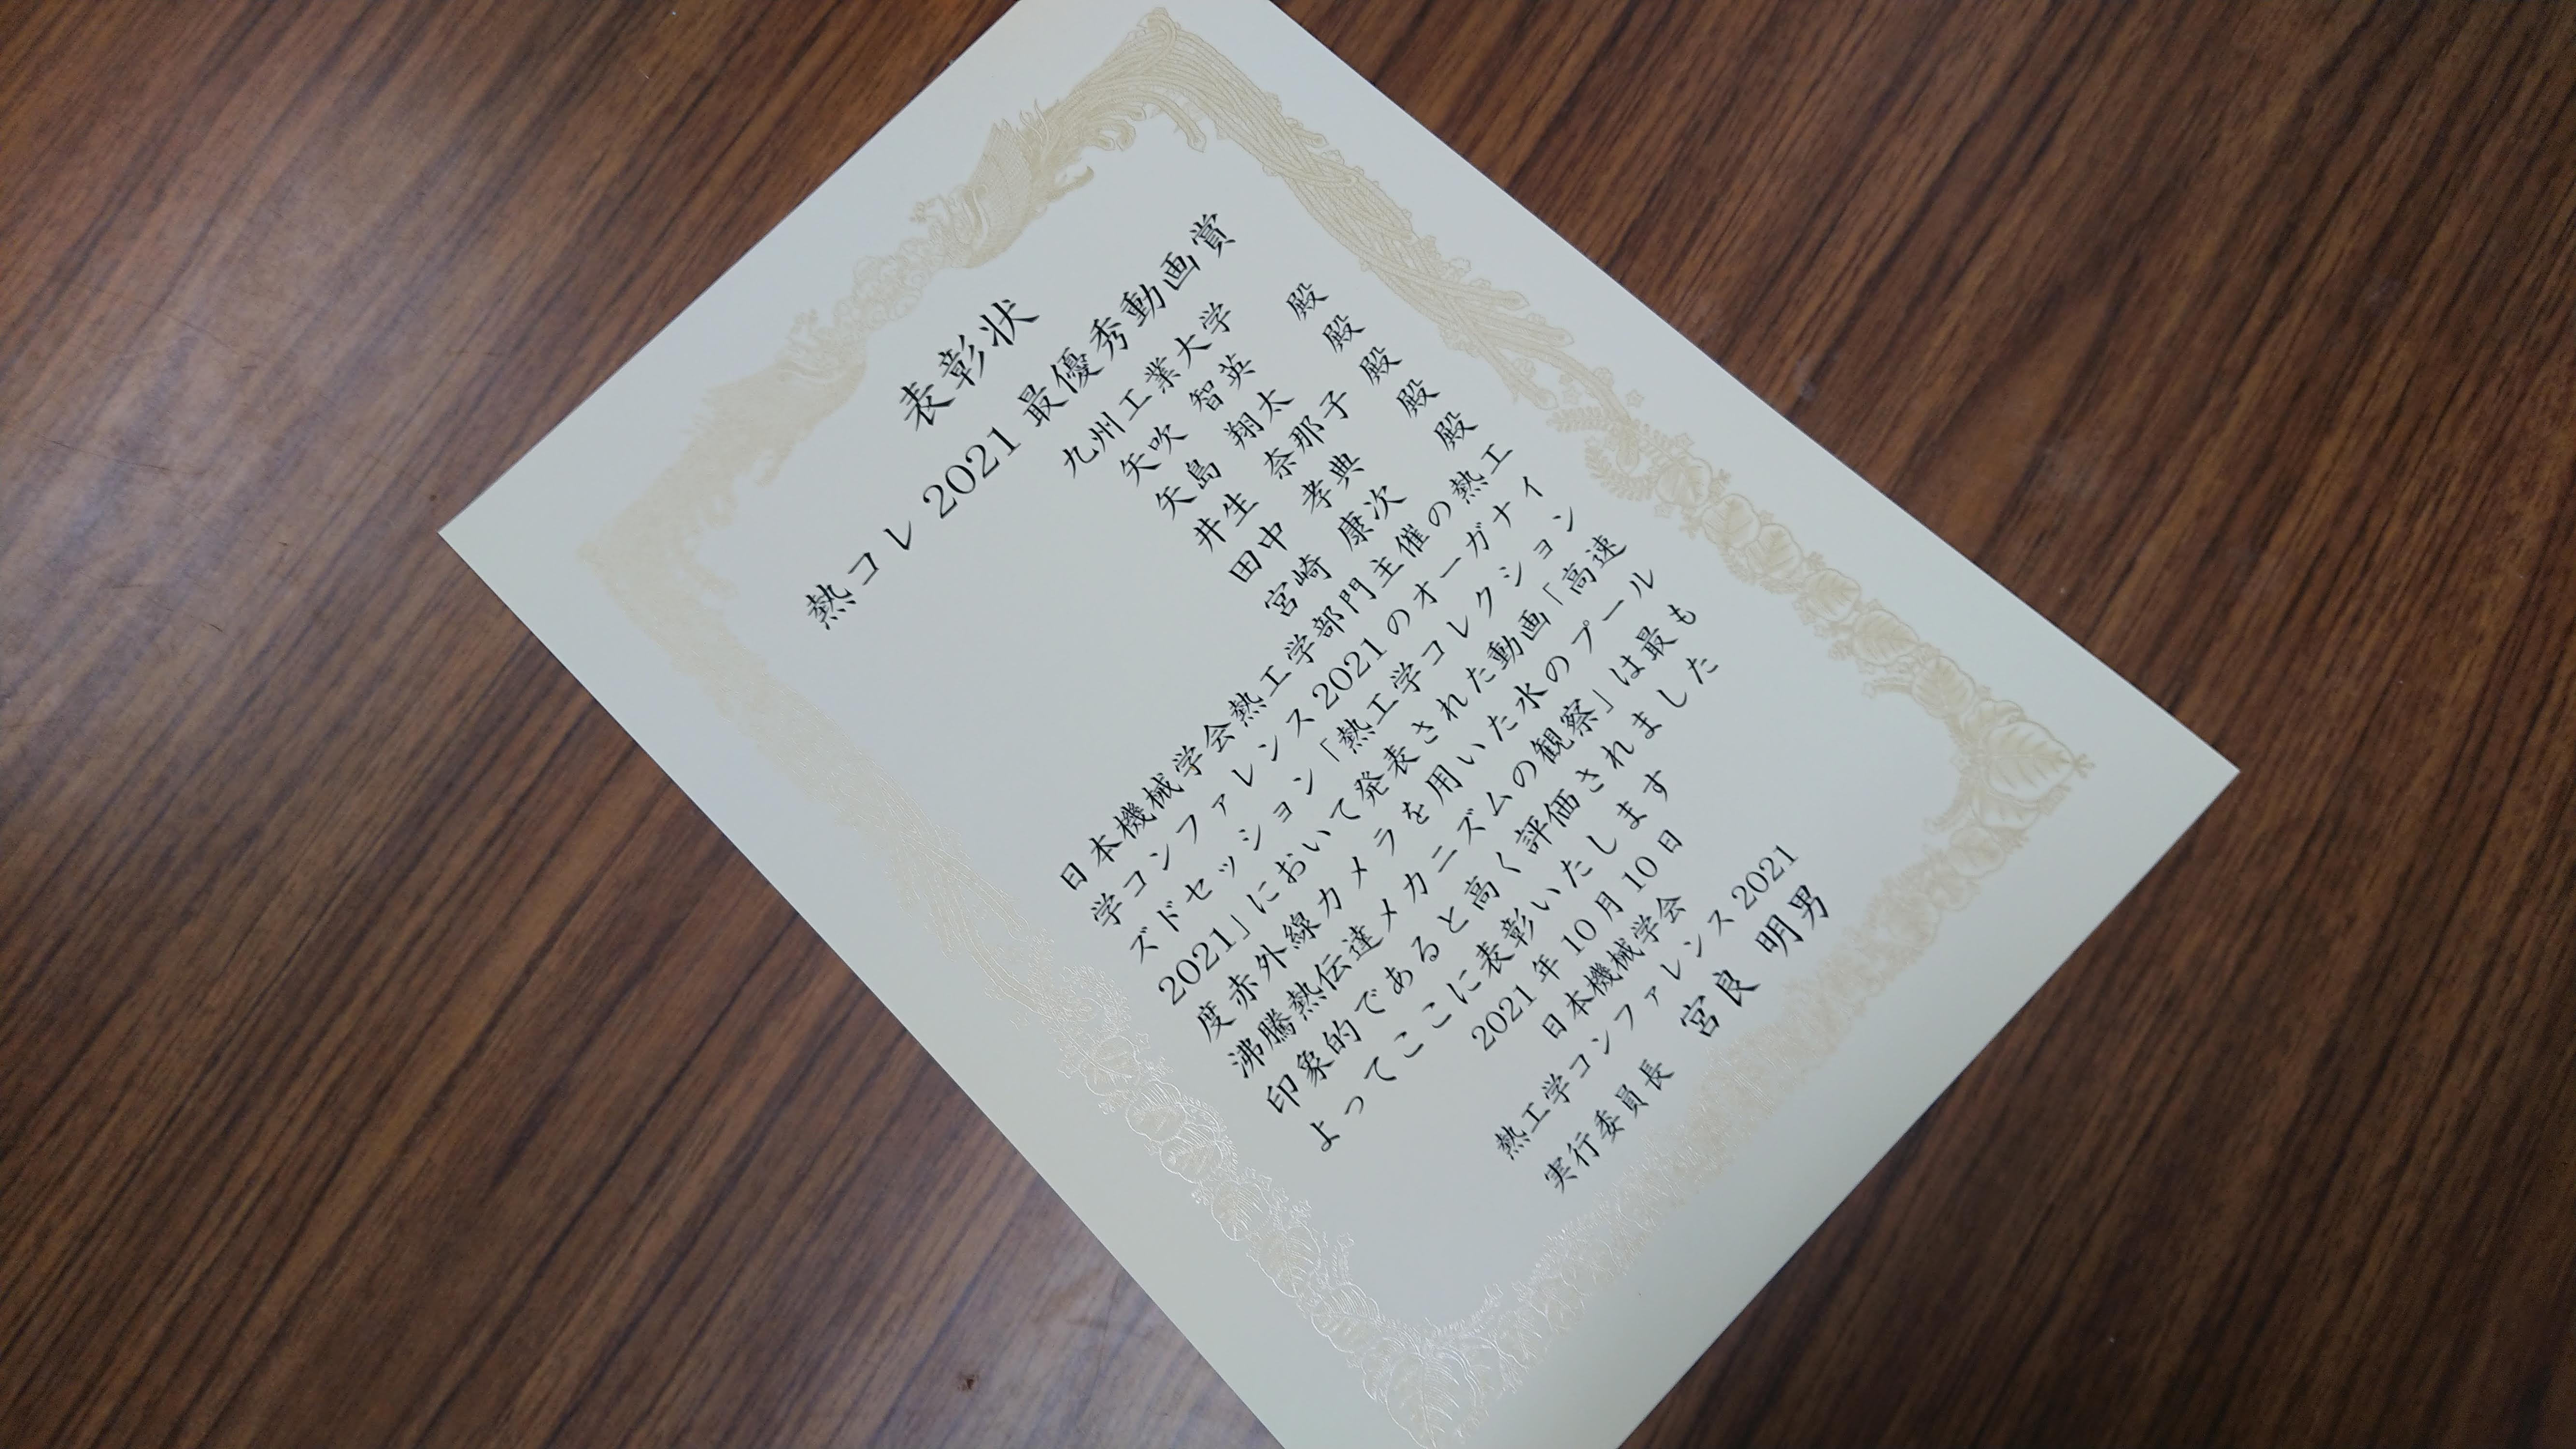 表彰状
熱コレ 2021 最優秀動画賞
九州工業大学
矢吹 智英 殿
矢島 翔太 殿
井生 奈那子 殿
田中 孝典 殿
宮崎 康次 殿
日本機械学会熱工学部門主催の熱工
学コンファレンス2021のオーガナイ
ズドセッション「熱工学コレクション
2021」において発表された動画「高速
度赤外線カメラを用いた水のプール
沸騰熱伝達メカニズムの観察」は最も
印象的であると高く評価されました
よってここに表彰いたします
2021年10月10日
日本機械学会
熱工学コンファレンス2021
実行委員長 宮良 明男